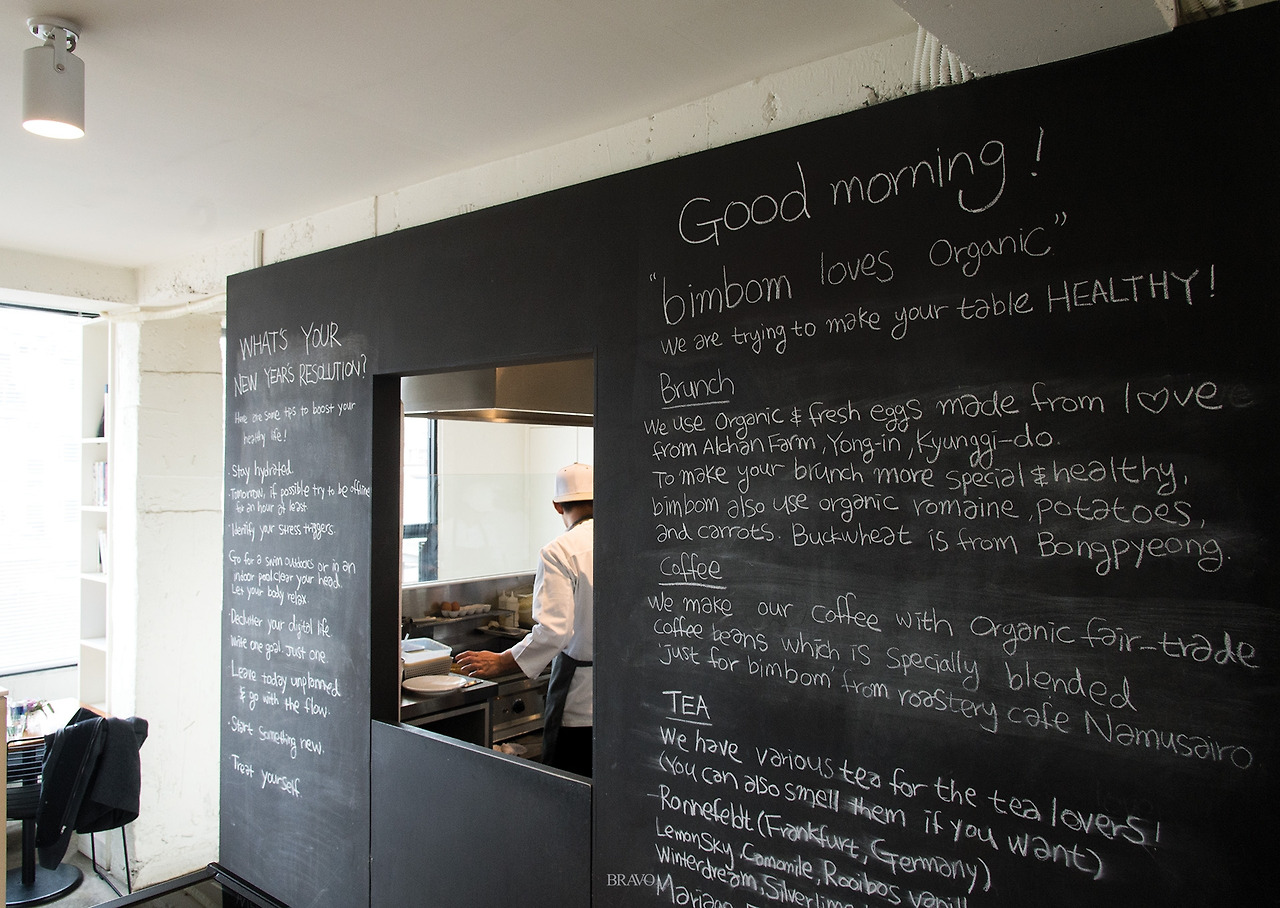 WHAT'S YOUR
NEW YEAR'S RESOLUTION?
Here are some tips to boost your
healthy life!
· Stay hydrated.
· Tomorrow, if possible try to be offline
for an hour at least
· Identify your stress triggers.
Go for a swim outdoors or in an
indoor pool clear your head.
Let your body relax.
· Declutter your digital life
Write one goal. Just one.
Leave today unplanned
& go with the flow.
· Start something new.
Treat yourself.
Good morning!
"bimbom loves Organic"
We are trying to make your table HEALTHY!
Brunch
We use Organic & fresh eggs made from love
from Alchan Farm, Yong-in, Kyunggi-do.
To make your brunch more special & healthy,
bimbom also use organic romaine, potatoes,
and carrots. Buckwheat is from Bongpyeong.
Coffee
We make our coffee with Organic fair-trade
coffee beans which is specially blended
just for bimbom from roastery cafe Namusairo
TEA
We have various tea for the tea lovers!
(You can also smell them if you want)
-Ronnefeldt (Frankfurt, Germany)
LemonSky, Camomile, Rooibos vanill
Winterdream, Silverlime
Mariage
BRAVO